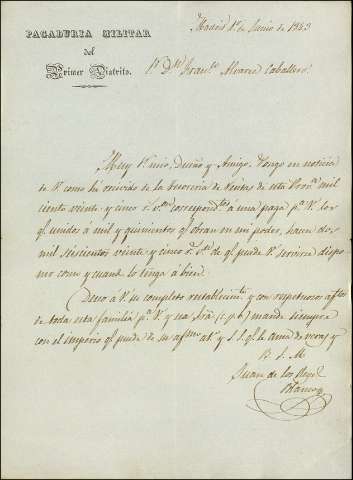 PAGADURIA MILITAR
del
Primer Distrito.
Madrid 1º de Junio de 1843
Sr Dn Franco Alvarez Caballero.
Muy Sr mio, Dueño y Amigo. Pongo en noticia
de V. como he recivido de la tesoreria de Rentas de esta Provª mil
ciento veinte y cinco rs von correspondtes a una paga pª V. los
qe unidos á mil y quinientos qe obran en mi poder, hacen dos
mil seiscientos veinte y cinco rs vn de qe puede V. servirse dispo
ner como y cuando lo tenga á bien.
Deseo á V. su completo restablecimto y con respetuosos aftos
de toda esta familia pª V. y esa Srª (c. p. b.) mande siempre
con el imperio qe puede de su afmo at. y S. S. qe le ama de veras y
B. S. M.
Juan de los Reyes
Blanco